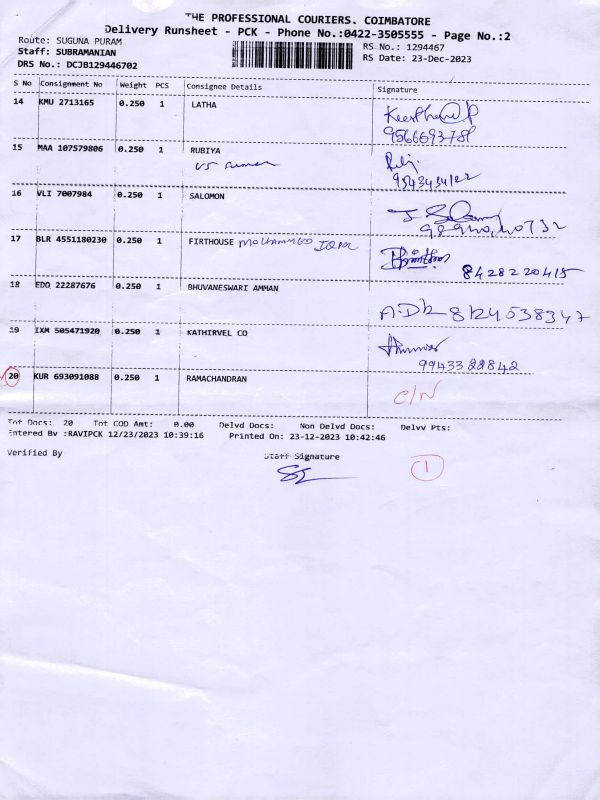 THE PROFESSIONAL COURIERS. COIMBATORE
Delivery Runsheet - PCK - Phone No.:0422-3505555 - Page No.:2
Route: SUGUNA PURAM
RS No.: 1294467
Staff: SUBRAMANIAN
RS Date: 23-Dec-2023
DRS No.: DCJB129446702
S No Consignment No Weight PCS Consignee Details Signature
14 KMU 2713165 0.250 1 LATHA
9566693781
15 MAA 107579806 0.250 1 RUBIYA
16 VLI 7007984 0.250 1 SALOMON
17 BLR 4551180230 0.250 1 FIRTHOUSE MOHAMMED IQBAL
8428220415
18 EDO 22287676 0.250 1 BHUVANESWARI AMMAN
8124538347
19 IXM 505471920 0.250 1 KATHIRVEL CO
9943322842
20 KUR 693091088 0.250 1 RAMACHANDRAN
C/N
Tot Docs: 20 Tot COD Amt: 0.00 Delvd Docs: Non Delvd Docs: Delvv Pts:
Entered By :RAVIPCK 12/23/2023 10:39:16 Printed On: 23-12-2023 10:42:46
Verified By Staff Signature
1